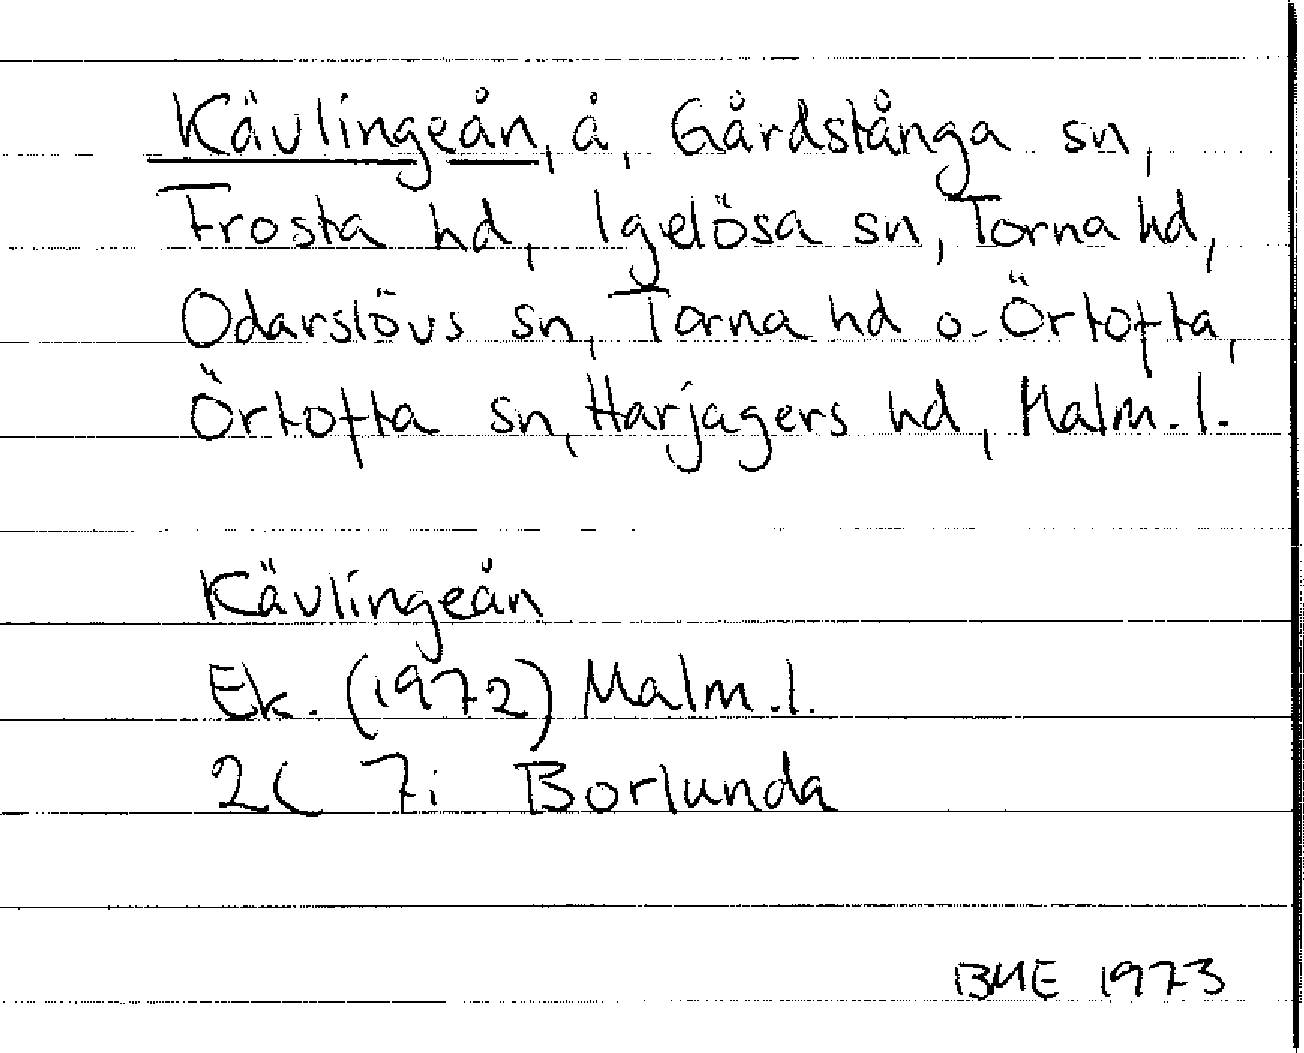 Kävlingeån, å, Gårdstånga sn,
Frosta hd, Igelösa sn, Torna hd,
Odarslövs sn, Torna hd o. Örtofta,
Örtofta sn, Harjagers hd, Malm. l.
Kävlingeån
Ek. (1972) Malm. l.
2C 7i Borlunda
BME 1973